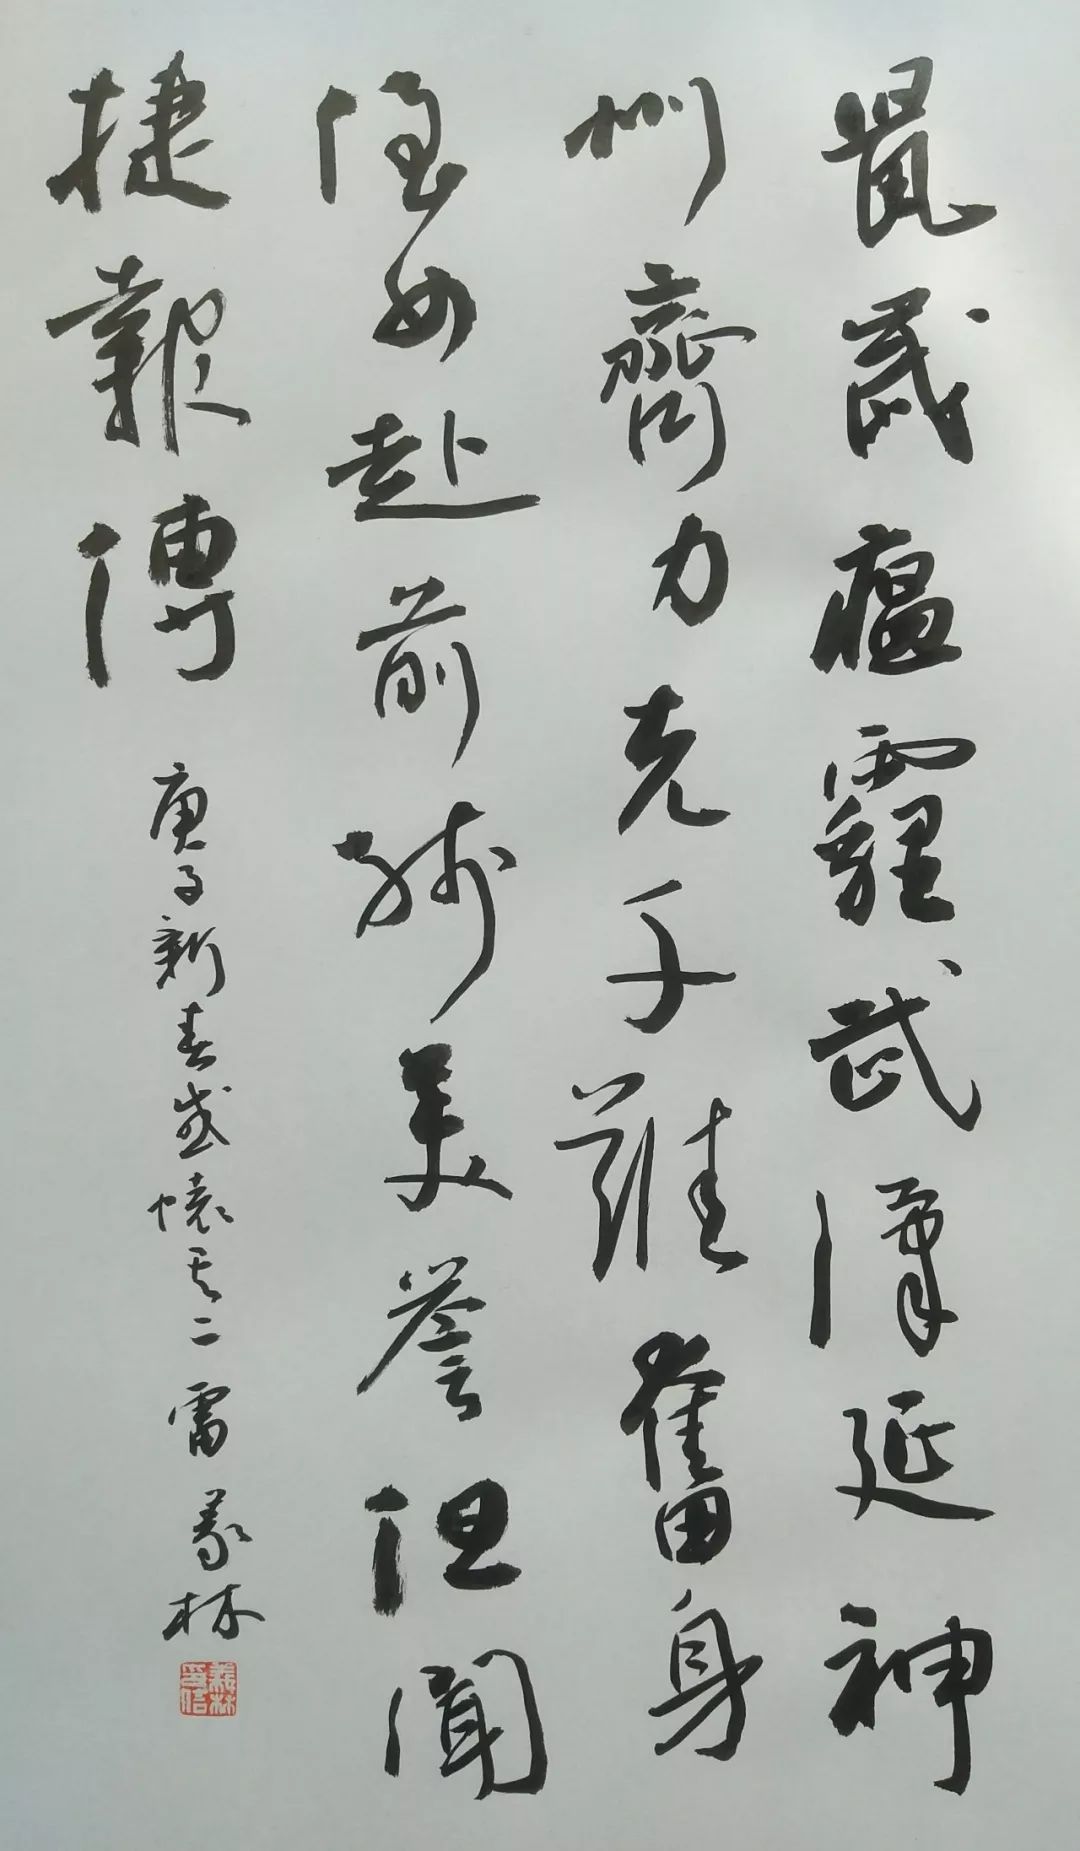 鼠歲瘟霾武漢延神
州齊力克千難奮身
侄女赴前綫美譽但聞
捷報傳
庚子新春感懷其二 雷義林
義林印信